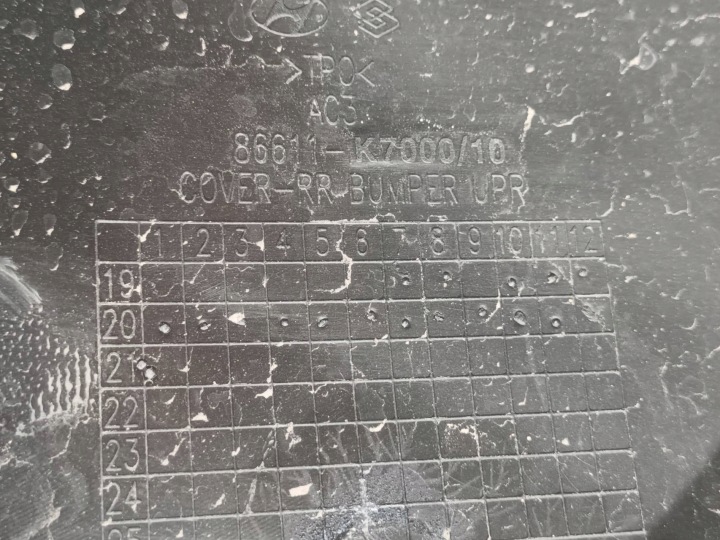 >TPO<
AC3
86611-K7000/10
COVER-RR BUMPER UPR
1 2 3 4 5 6 7 8 9 10 11 12
19
20
21
22
23
24
25